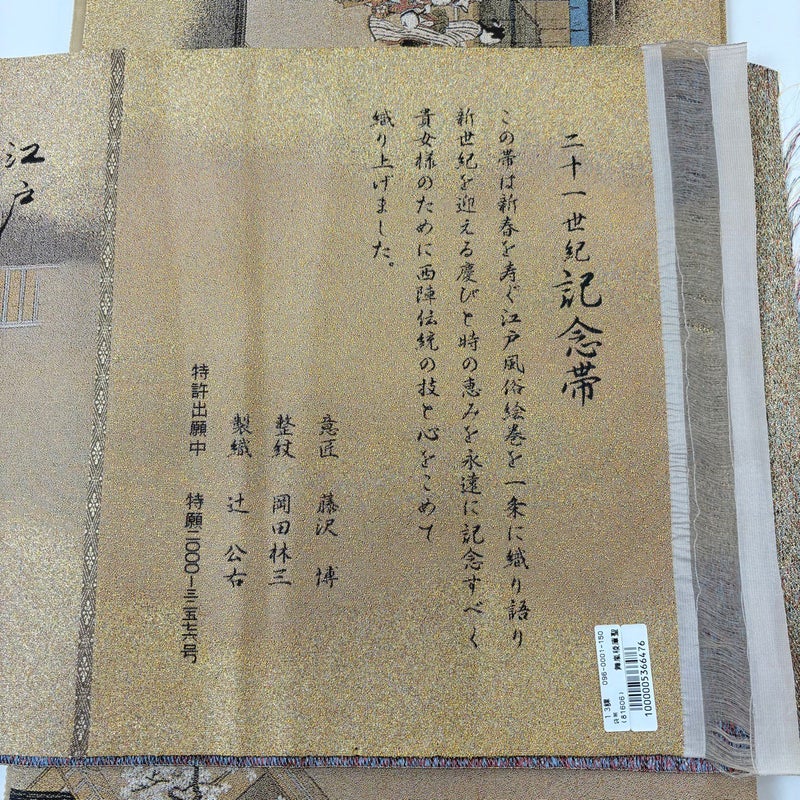 二十一世紀記念帯
この帯は新春を寿ぐ江戸風俗絵巻を一条に織り語り
新世紀を迎える慶びと時の恵みを永遠に記念すべく
貴女様のために西陣伝統の技と心をこめて
織り上げました。
意匠 藤沢 博
整紋 岡田林三
製織 辻 公右
特許出願中 特願二〇〇〇-三二五七六号
江戸
098-0001-150
(81606)
1000005366476